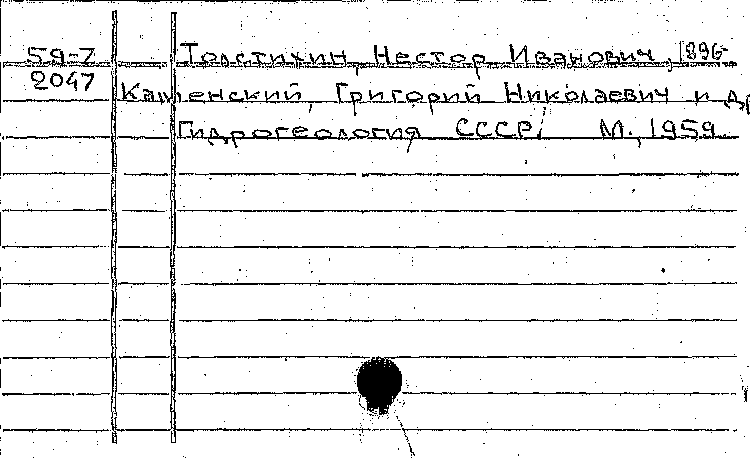 59-7 Толстихин, Нестор Иванович, 1896-
2047 Каменский, Григорий Николаевич и др
Гидрогеология СССР. М., 1959.